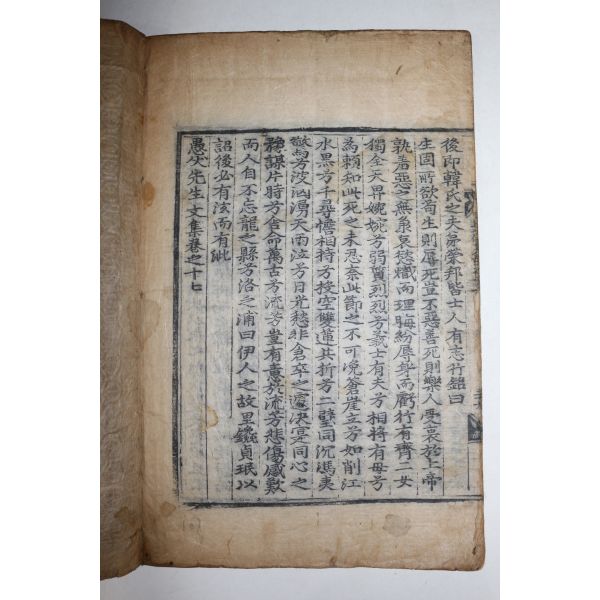 後即韓氏之夫弟榮邦皆士人有志行銘曰
生固所欲苟生則辱死豈不惡善死則樂人受衷於上帝
孰善惡之無系哀慾熾而理晦紛辱身而虧行有齊二女
獨全天畀婉婉兮弱質烈烈兮義士有夫兮相將有母兮
為賴知此死之未忍奈此節之不可浼倉崖立兮如削江
水黑兮千尋憺相持兮投空雙蓮共折兮二璧同沉馮夷
驚兮波洶湧天雨泣兮日光愁非倉卒之處決寔同心之
豫謀片時兮舍命萬古兮流芳豈有意於流芳悲傷感歎
而人自不忘龍之縣兮洛之浦曰伊人之故里鑱貞珉以
詔後必有泫而有泚
愚伏先生文集卷之十七